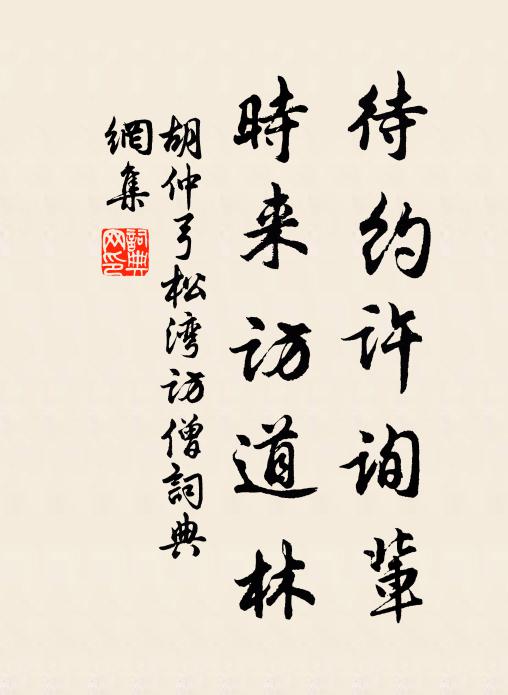 待约许询輩
時来访道林
胡仲弓松湾访僧詞典
網集
詞典網印